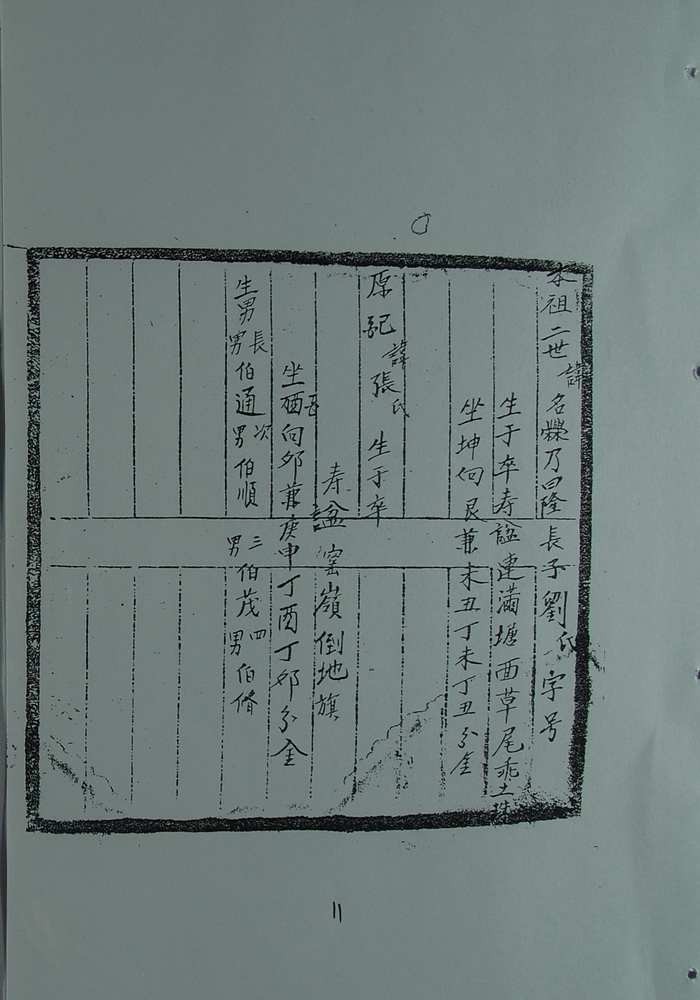 本祖二世諱名榮乃曰隆長子劉氏字号
生于卒寿諡連满塘西草尾乖土珠
坐坤向艮兼未丑丁未丁丑分金
原記諱張氏生于卒
寿諡窰嶺倒地旗
坐酉向邜兼庚申丁酉丁邜分金
生男長男伯通次男伯順三男伯茂四男伯脩
11